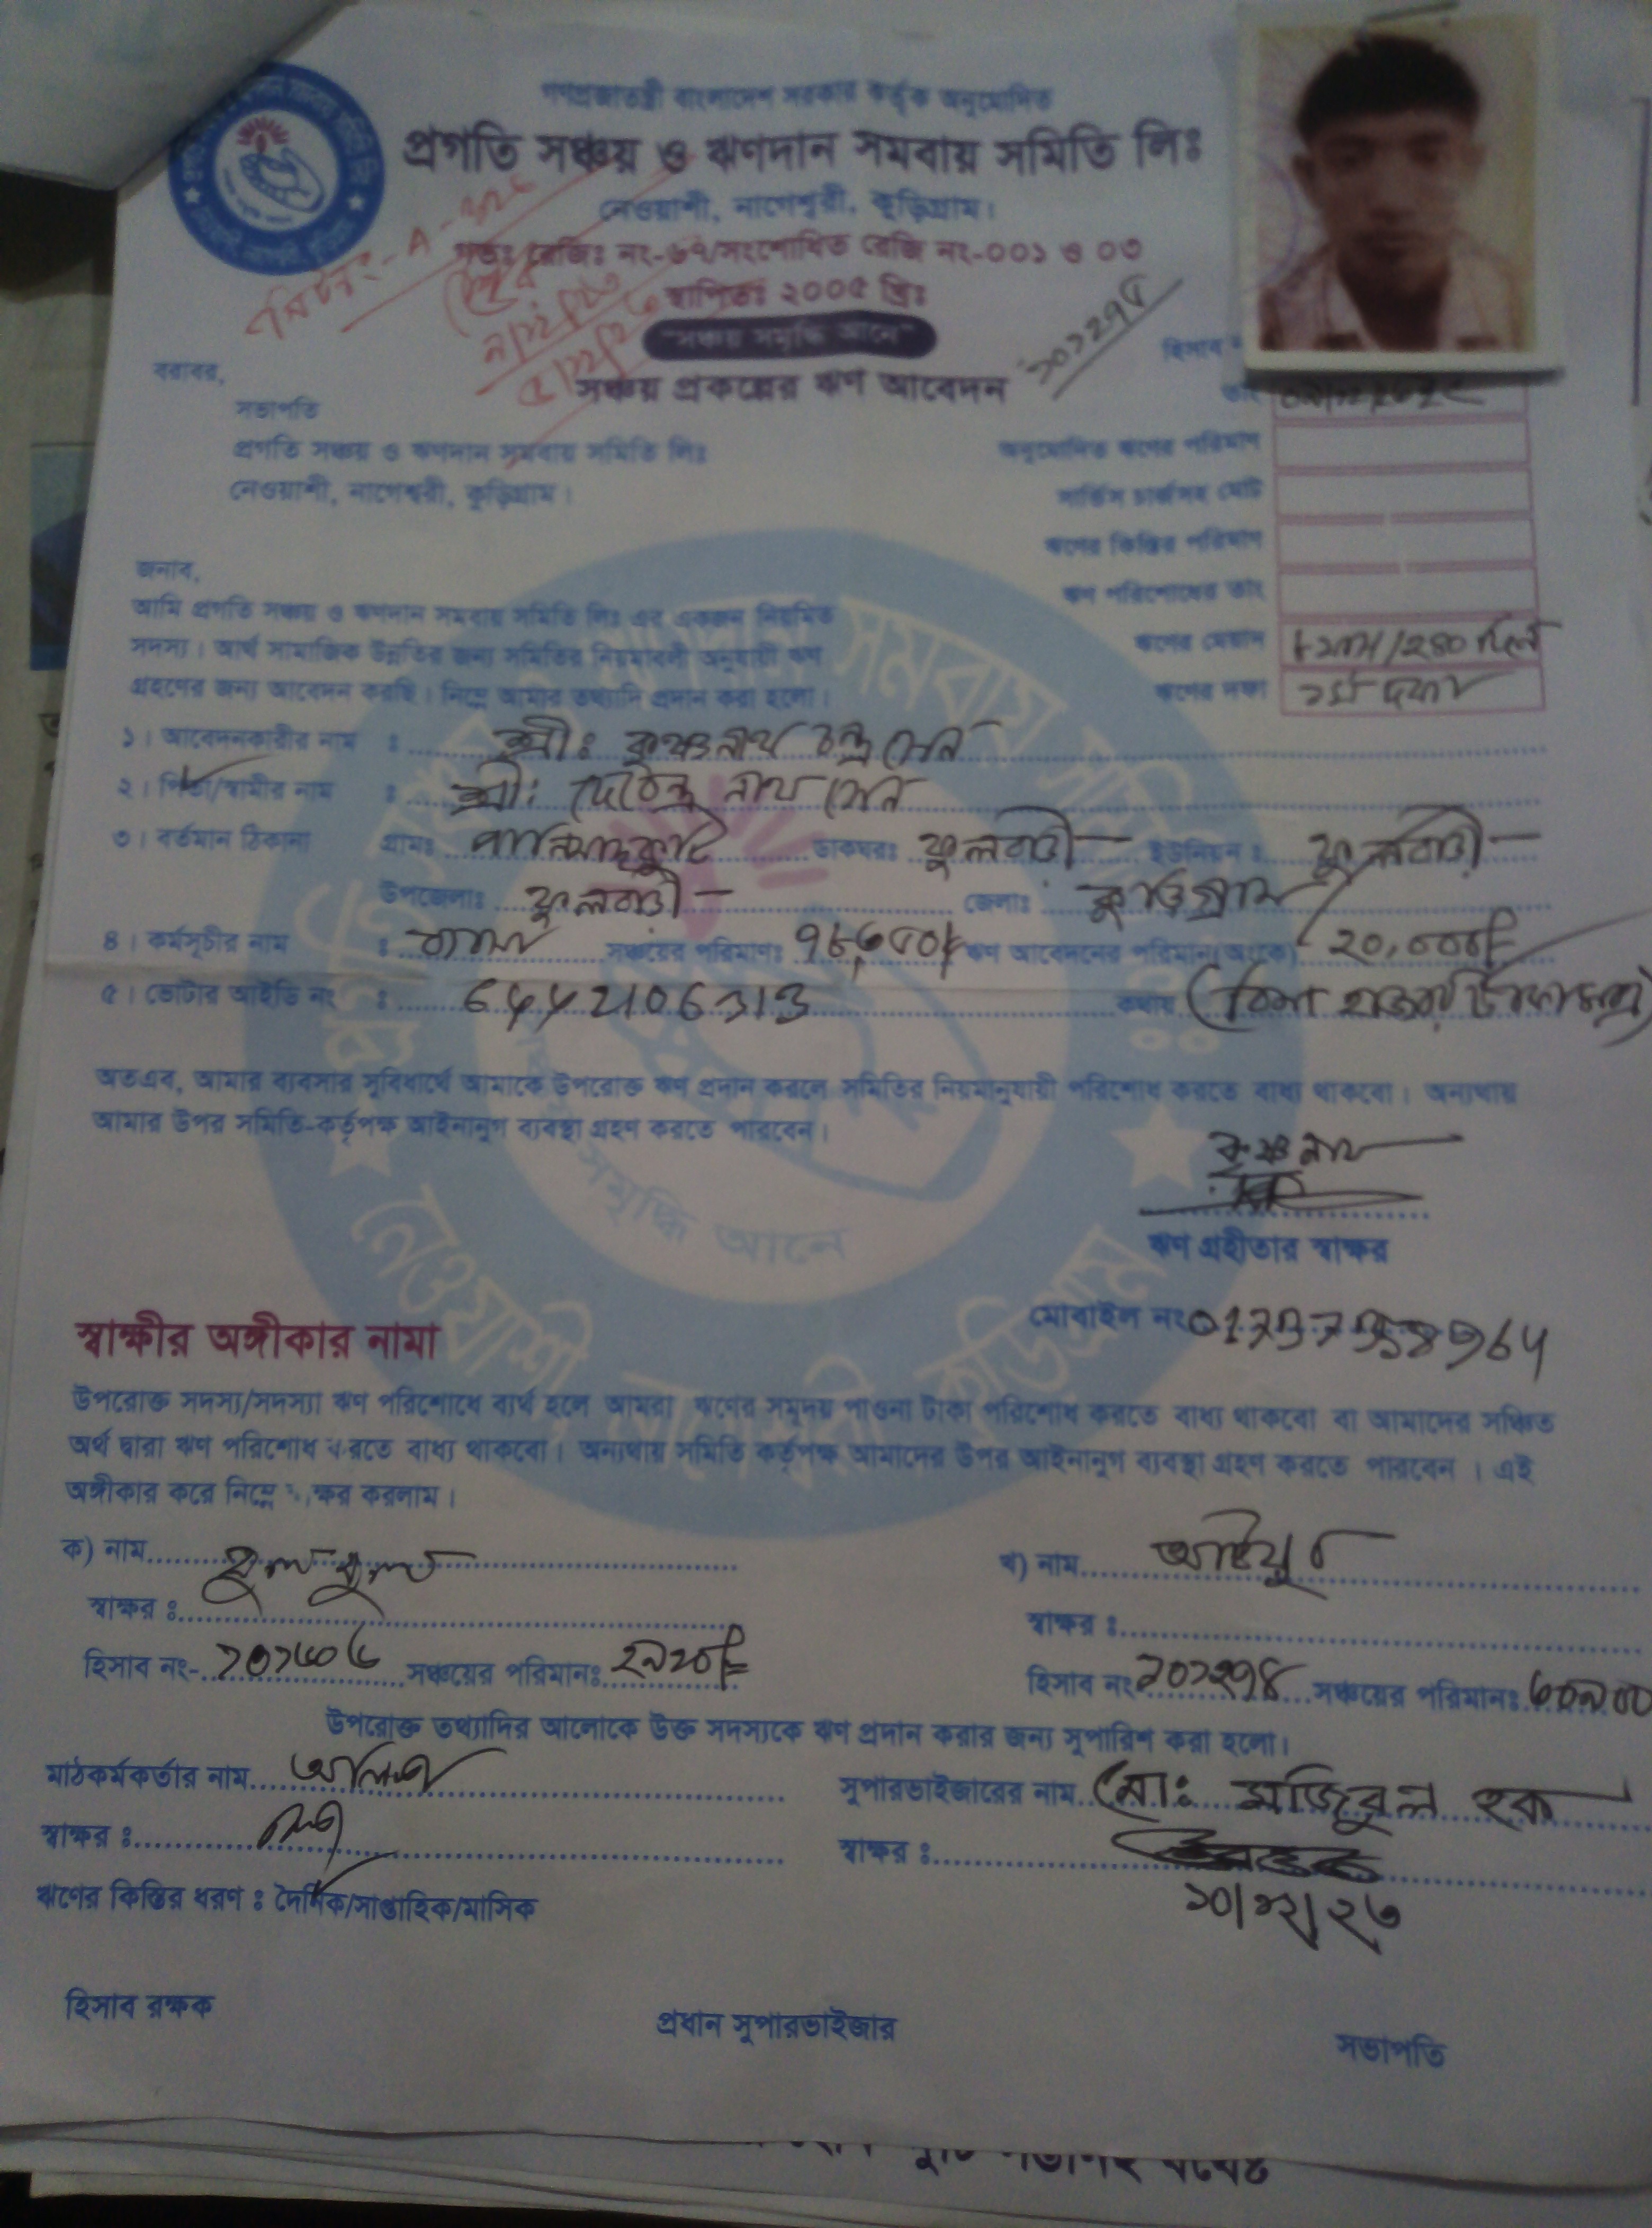 গণপ্রজাতন্ত্রী বাংলাদেশ সরকার কর্তৃক অনুমোদিত
প্রগতি সঞ্চয় ও ঋণদান সমবায় সমিতি লিঃ
নেওয়াশী, নাগেশ্বরী, কুড়িগ্রাম।
গভঃ রেজিঃ নং-৬৭/সংশোধিত রেজি নং-০০১ ও ০৩
স্থাপিতঃ ২০০৫ খ্রিঃ
"সঞ্চয় সমৃদ্ধি আনে"
সঞ্চয় প্রকল্পের ঋণ আবেদন
হিসাব
তাং
বরাবর,
সভাপতি
প্রগতি সঞ্চয় ও ঋণদান সমবায় সমিতি লিঃ
নেওয়াশী, নাগেশ্বরী, কুড়িগ্রাম।
অনুমোদিত ঋণের পরিমাণ
সার্ভিস চার্জসহ মোট
ঋণের কিস্তির পরিমাণ
ঋণ পরিশোধের তাং
ঋণের মেয়াদ ৮ মাস/২৪০ দিন
ঋণের দফা ১ম দফা
জনাব,
আমি প্রগতি সঞ্চয় ও ঋণদান সমবায় সমিতি লিঃ এর একজন নিয়মিত
সদস্য। আর্থ সামাজিক উন্নতির জন্য সমিতির নিয়মাবলী অনুযায়ী ঋণ
গ্রহণের জন্য আবেদন করছি। নিম্নে আমার তথ্যাদি প্রদান করা হলো।
১। আবেদনকারীর নাম : শ্রী: কৃষ্ণনাথ চন্দ্র সেন
২। পিতা/স্বামীর নাম : শ্রী: দেবেন্দ্র নাথ সেন
৩। বর্তমান ঠিকানা গ্রামঃ পানিমাছকুটি ডাকঘরঃ ফুলবাড়ী ইউনিয়ন : ফুলবাড়ী
উপজেলাঃ ফুলবাড়ী জেলাঃ কুড়িগ্রাম
৪। কর্মসূচীর নাম : সঞ্চয়ের পরিমাণঃ ঋণ আবেদনের পরিমান(অংকে) ২০,০০০/=
৫। ভোটার আইডি নং : কথায় (বিশ হাজার টাকা মাত্র)
অতএব, আমার ব্যবসার সুবিধার্থে আমাকে উপরোক্ত ঋণ প্রদান করলে সমিতির নিয়মানুযায়ী পরিশোধ করতে বাধ্য থাকবো। অন্যথায়
আমার উপর সমিতি-কর্তৃপক্ষ আইনানুগ ব্যবস্থা গ্রহণ করতে পারবেন।
কৃষ্ণ নাথ
ঋণ গ্রহীতার স্বাক্ষর
মোবাইল নং
স্বাক্ষীর অঙ্গীকার নামা
উপরোক্ত সদস্য/সদস্যা ঋণ পরিশোধে ব্যর্থ হলে আমরা ঋণের সমুদয় পাওনা টাকা পরিশোধ করতে বাধ্য থাকবো বা আমাদের সঞ্চিত
অর্থ দ্বারা ঋণ পরিশোধ করতে বাধ্য থাকবো। অন্যথায় সমিতি কর্তৃপক্ষ আমাদের উপর আইনানুগ ব্যবস্থা গ্রহণ করতে পারবেন। এই
অঙ্গীকার করে নিম্নে স্বাক্ষর করলাম।
ক) নাম বুলবুল
খ) নাম আইয়ুব
স্বাক্ষর :
স্বাক্ষর :
হিসাব নং- ১০১৬০৬ সঞ্চয়ের পরিমানঃ
হিসাব নং ১০১২৭৪ সঞ্চয়ের পরিমানঃ
উপরোক্ত তথ্যাদির আলোকে উক্ত সদস্যকে ঋণ প্রদান করার জন্য সুপারিশ করা হলো।
মাঠকর্মকর্তার নাম
সুপারভাইজারের নাম মো: মজিবুল হক
স্বাক্ষর :
স্বাক্ষর :
১০/১২/২৩
ঋণের কিস্তির ধরণ : দৈনিক/সাপ্তাহিক/মাসিক
হিসাব রক্ষক
প্রধান সুপারভাইজার
সভাপতি